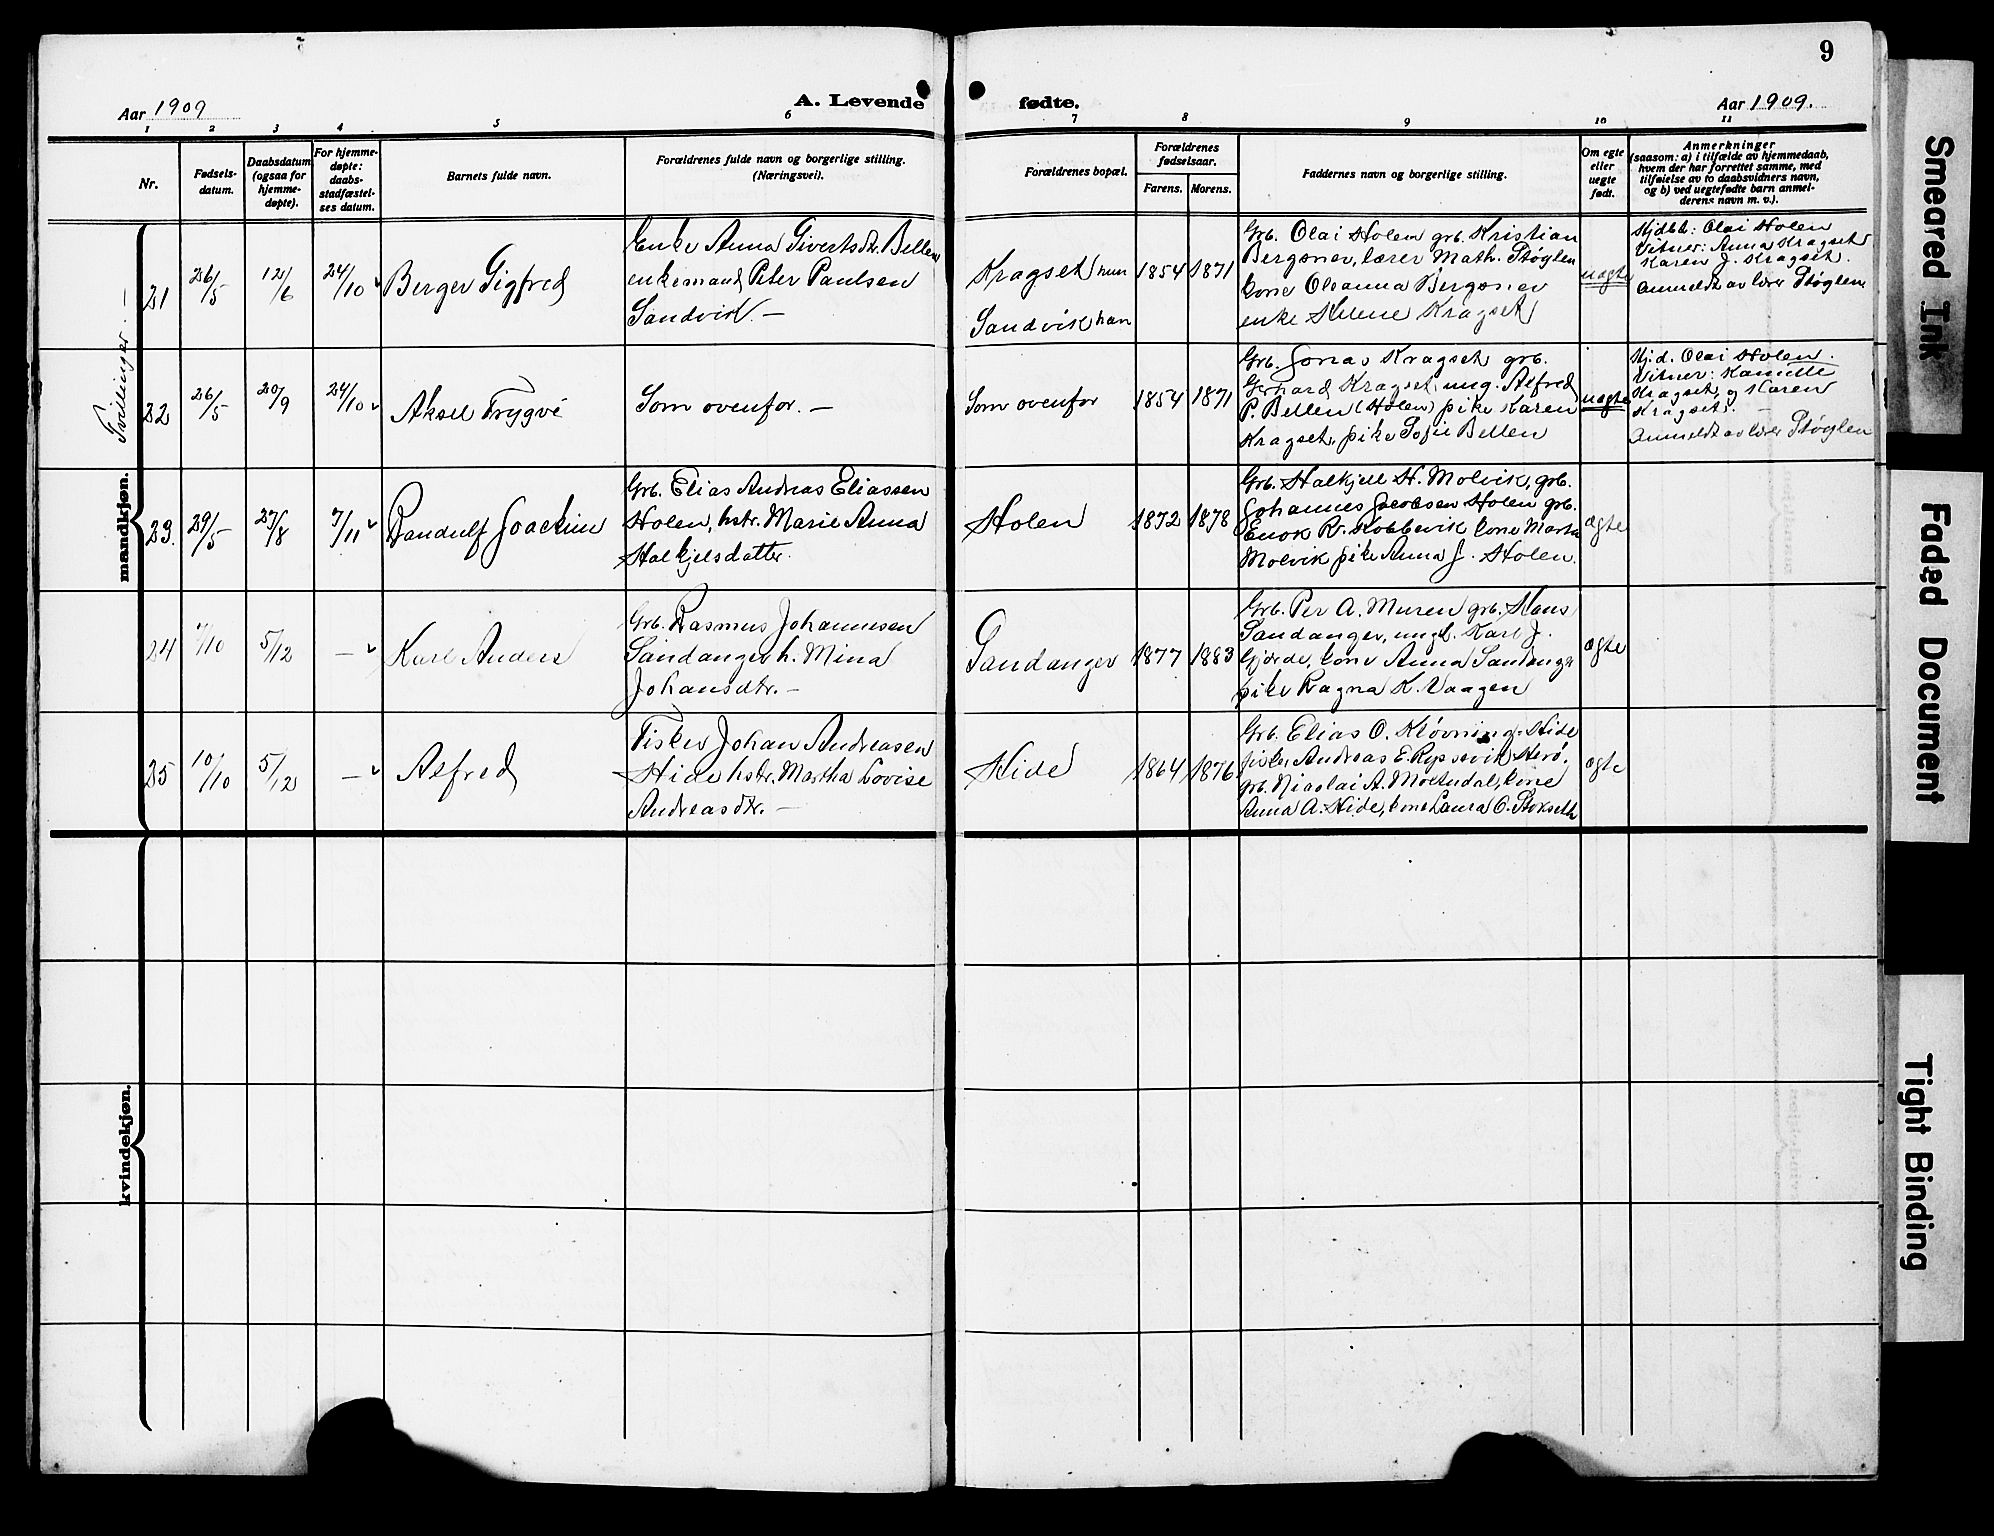 9
Aar 1909
A. Levende fødte.
Aar 1909.
1 2 3 4 5 6 7 8 9 10 11
Nr.
Fødsels-
datum.
Daabsdatum
(ogsaa for
hjemme-
døpte).
For hjemme-
døpte:
daabs-
stadfæstel-
ses datum.
Barnets fulde navn.
Forældrenes fulde navn og borgerlige stilling.
(Næringsvei).
Forældrenes bopæl.
Forældrenes
fødselsaar.
Farens. Morens.
Faddernes navn og borgerlige stilling.
Om egte
eller
uegte
født.
Anmerkninger
(saasom: a) i tilfælde av hjemmedaab,
hvem der har forrettet samme, med
tilføielse av to daabsvidners navn,
og b) ved uegtefødte barn anmel-
derens navn m. v.).
Tvillinger. —
mandkjøn.
21
26/5
12/6
24/10
Berger Sigfred
Enke Anna Sivertsdtr. Bellen
enkemand Peter Paulsen
Sandvik. —
Kragset hun
Sandvik han
1854
1871
Grb. Olai Holen grb. Kristian
Bergsnev, lærer Math. Støylen
kone Oleanna Bergsnev
enke Helene Kragset
uægte
Hjdbt: Olai Holen
Vitner: Anna Kragset
Karen J. Kragset.
Anmeldt av lærer Støylen
22
26/5
20/9
24/10
Aksel Trygve
Som ovenfor. —
Som ovenfor
1854
1871
Grb. Jonas Kragset grb.
Gerhard Kragset, ung. Alfred
P. Bellen (Holen) pike Karen
Kragset, pike Sofie Bellen
uægte
Hj.d. Olai Holen.
Vitner:
Kragset, og Karen
Kragset.
Anmeldt av lærer Støylen
23.
29/5
27/8
7/11
Randulf Joachim
Grb. Elias Andreas Eliassen
Holen, hstr. Marie Anna
Halkjelsdatter.
Holen
1872
1878
Grb. Halkjell H. Molvik, grb.
Johannes Jacobsen Holen grb.
Enok R. Kobbevik kone Martha
Molvik pike Anna J. Holen.
ægte
24
/10
5/12
—
Karl Anders
Grb. Rasmus Johannesen
Sandanger h. Mina
Johansdtr. —
Sandanger
1877
1883
Grb. Per A. Muren grb. Hans
Sandanger, ungk. Karl J.
Gjerde, kone Anna Sandanger
pike Ragna K. Vaagen
ægte
25
10/10
5/12
—
Alfred
Fisker Johan Andreasen
Hide hstr. Martha Lovise
Andreasdtr. —
Hide
1864
1876
Grb. Elias O. Kløvning, Hide
fisker Andreas E. Rypsevik Herø,
grb. Nicolai A. Moltudal, kone
Anna A. Hide, kone Laura O. Stokseth
ægte
kvindekjøn.
Smeared Ink
Faded Document
Tight Binding